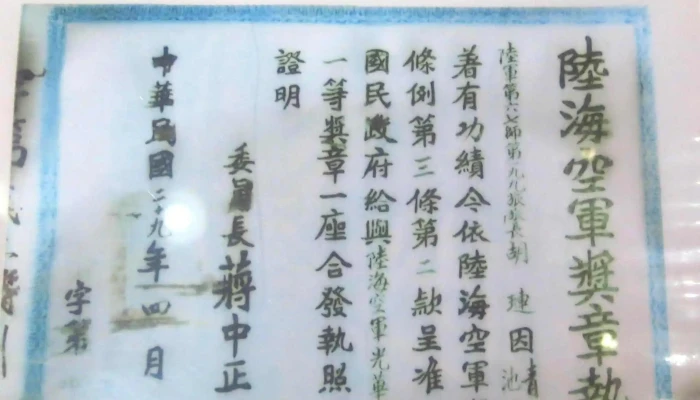 陸海空軍獎章執
陸軍第六七師第一九九旅旅長胡璉因青池
著有功績令依陸海空軍
條例第三條第二款呈准
國民政府給與陸海空軍光華
一等獎章一座合發執照
證明
委員長蔣中正
中華民國二十九年四月
字第